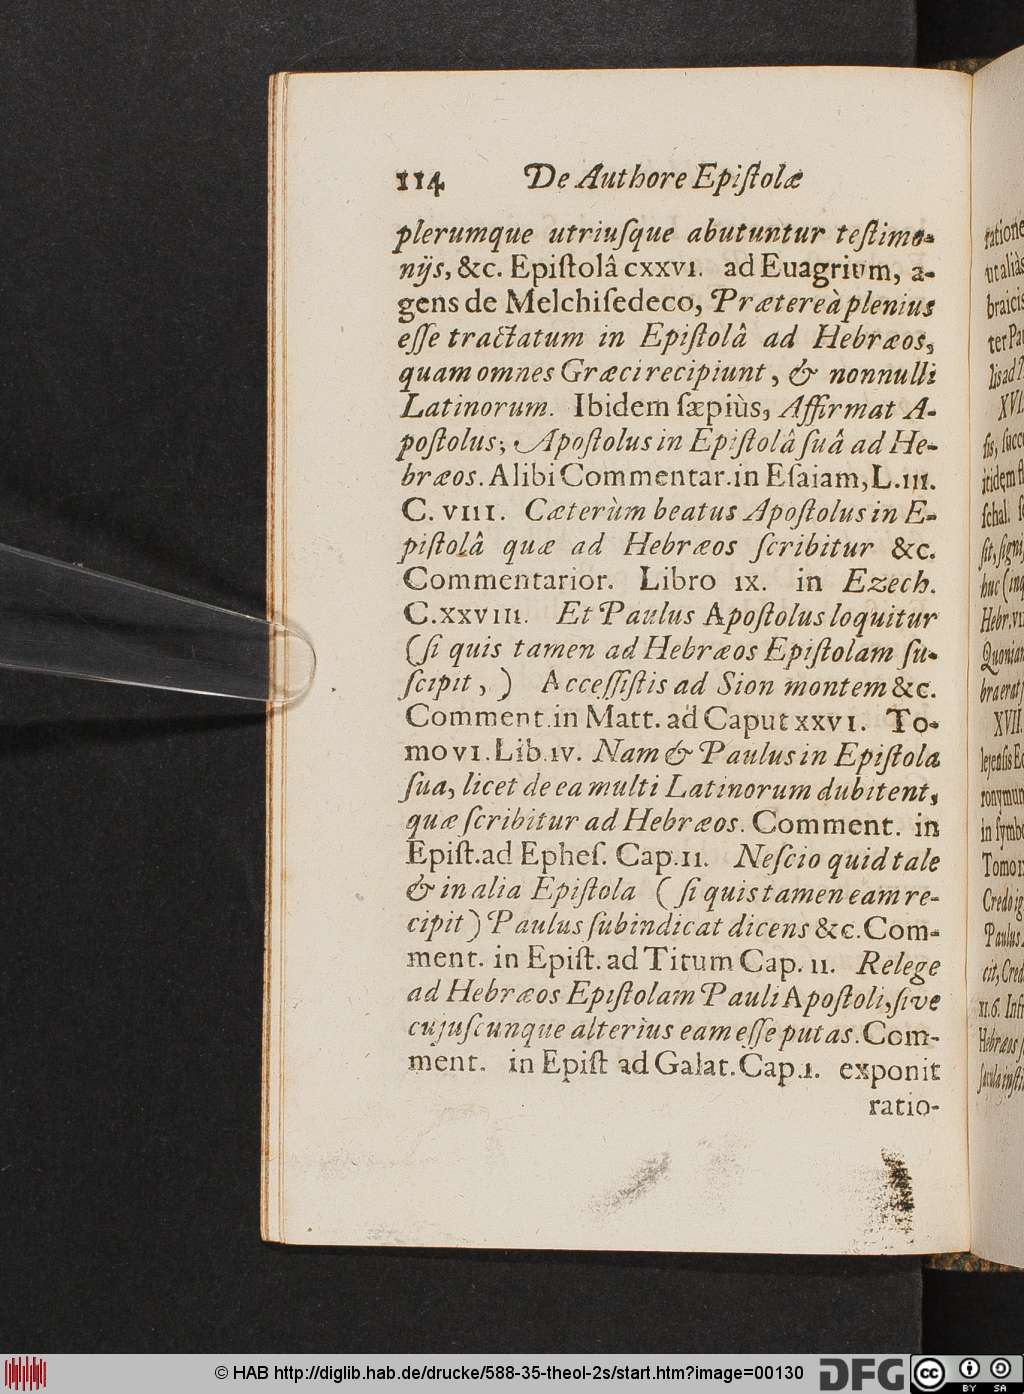 114 De Authore Epiſtolæ
plerumque utriuſque abutuntur teſtimo-
nijs, &c. Epiſtolâ cxxvi. ad Euagrium, a-
gens de Melchiſedeco, Prætereà plenius
eſſe tractatum in Epiſtolâ ad Hebræos,
quam omnes Græci recipiunt, & nonnulli
Latinorum. Ibidem ſæpiùs, Affirmat A-
poſtolus; Apoſtolus in Epiſtolâ ſuâ ad He-
bræos. Alibi Commentar. in Eſaiam, L. iii.
C. viii. Cæterùm beatus Apoſtolus in E-
piſtolâ quæ ad Hebræos ſcribitur &c.
Commentarior. Libro ix. in Ezech.
C. xxviii. Et Paulus Apoſtolus loquitur
(ſi quis tamen ad Hebræos Epiſtolam ſu-
ſcipit,) Acceſſiſtis ad Sion montem &c.
Comment. in Matt. ad Caput xxvi. To-
mo vi. Lib. iv. Nam & Paulus in Epiſtola
ſua, licet de ea multi Latinorum dubitent,
quæ ſcribitur ad Hebræos. Comment. in
Epiſt. ad Epheſ. Cap. ii. Neſcio quid tale
& in alia Epiſtola (ſi quis tamen eam re-
cipit) Paulus ſubindicat dicens &c. Com-
ment. in Epiſt. ad Titum Cap. ii. Relege
ad Hebræos Epiſtolam Pauli Apoſtoli, ſive
cujuſcunque alterius eam eſſe putas. Com-
ment. in Epiſt ad Galat. Cap. i. exponit
ratio-
ratione
ut aliàs
braicis
ter Pau
lis ad
XVI.
ſis, ſucc
itidem
ſchal.
ſit, ſigni
huc (inq
Hebr. vii
Quoniam
braerat
XVII.
lejenſis
ronymum
in ſymbo
Tomo
Credo ig
Paulus
cit, Cred
xi. 6. Infr
Hebræos
ſæcula inſti
© HAB http://diglib.hab.de/drucke/588-35-theol-2s/start.htm?image=00130
DFG
cc
BY SA